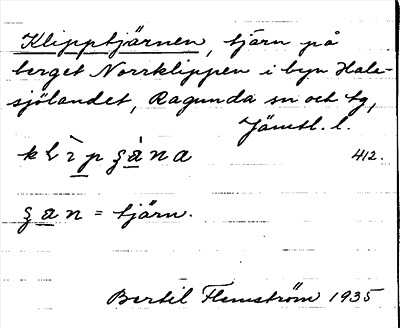 Klipptjärnen, tjärn på
berget Norrklippen i byn Hala-
sjölandet, Ragunda sn och tg,
Jämtl. l.
412.
= tjärn.
Bertil Flemström 1935